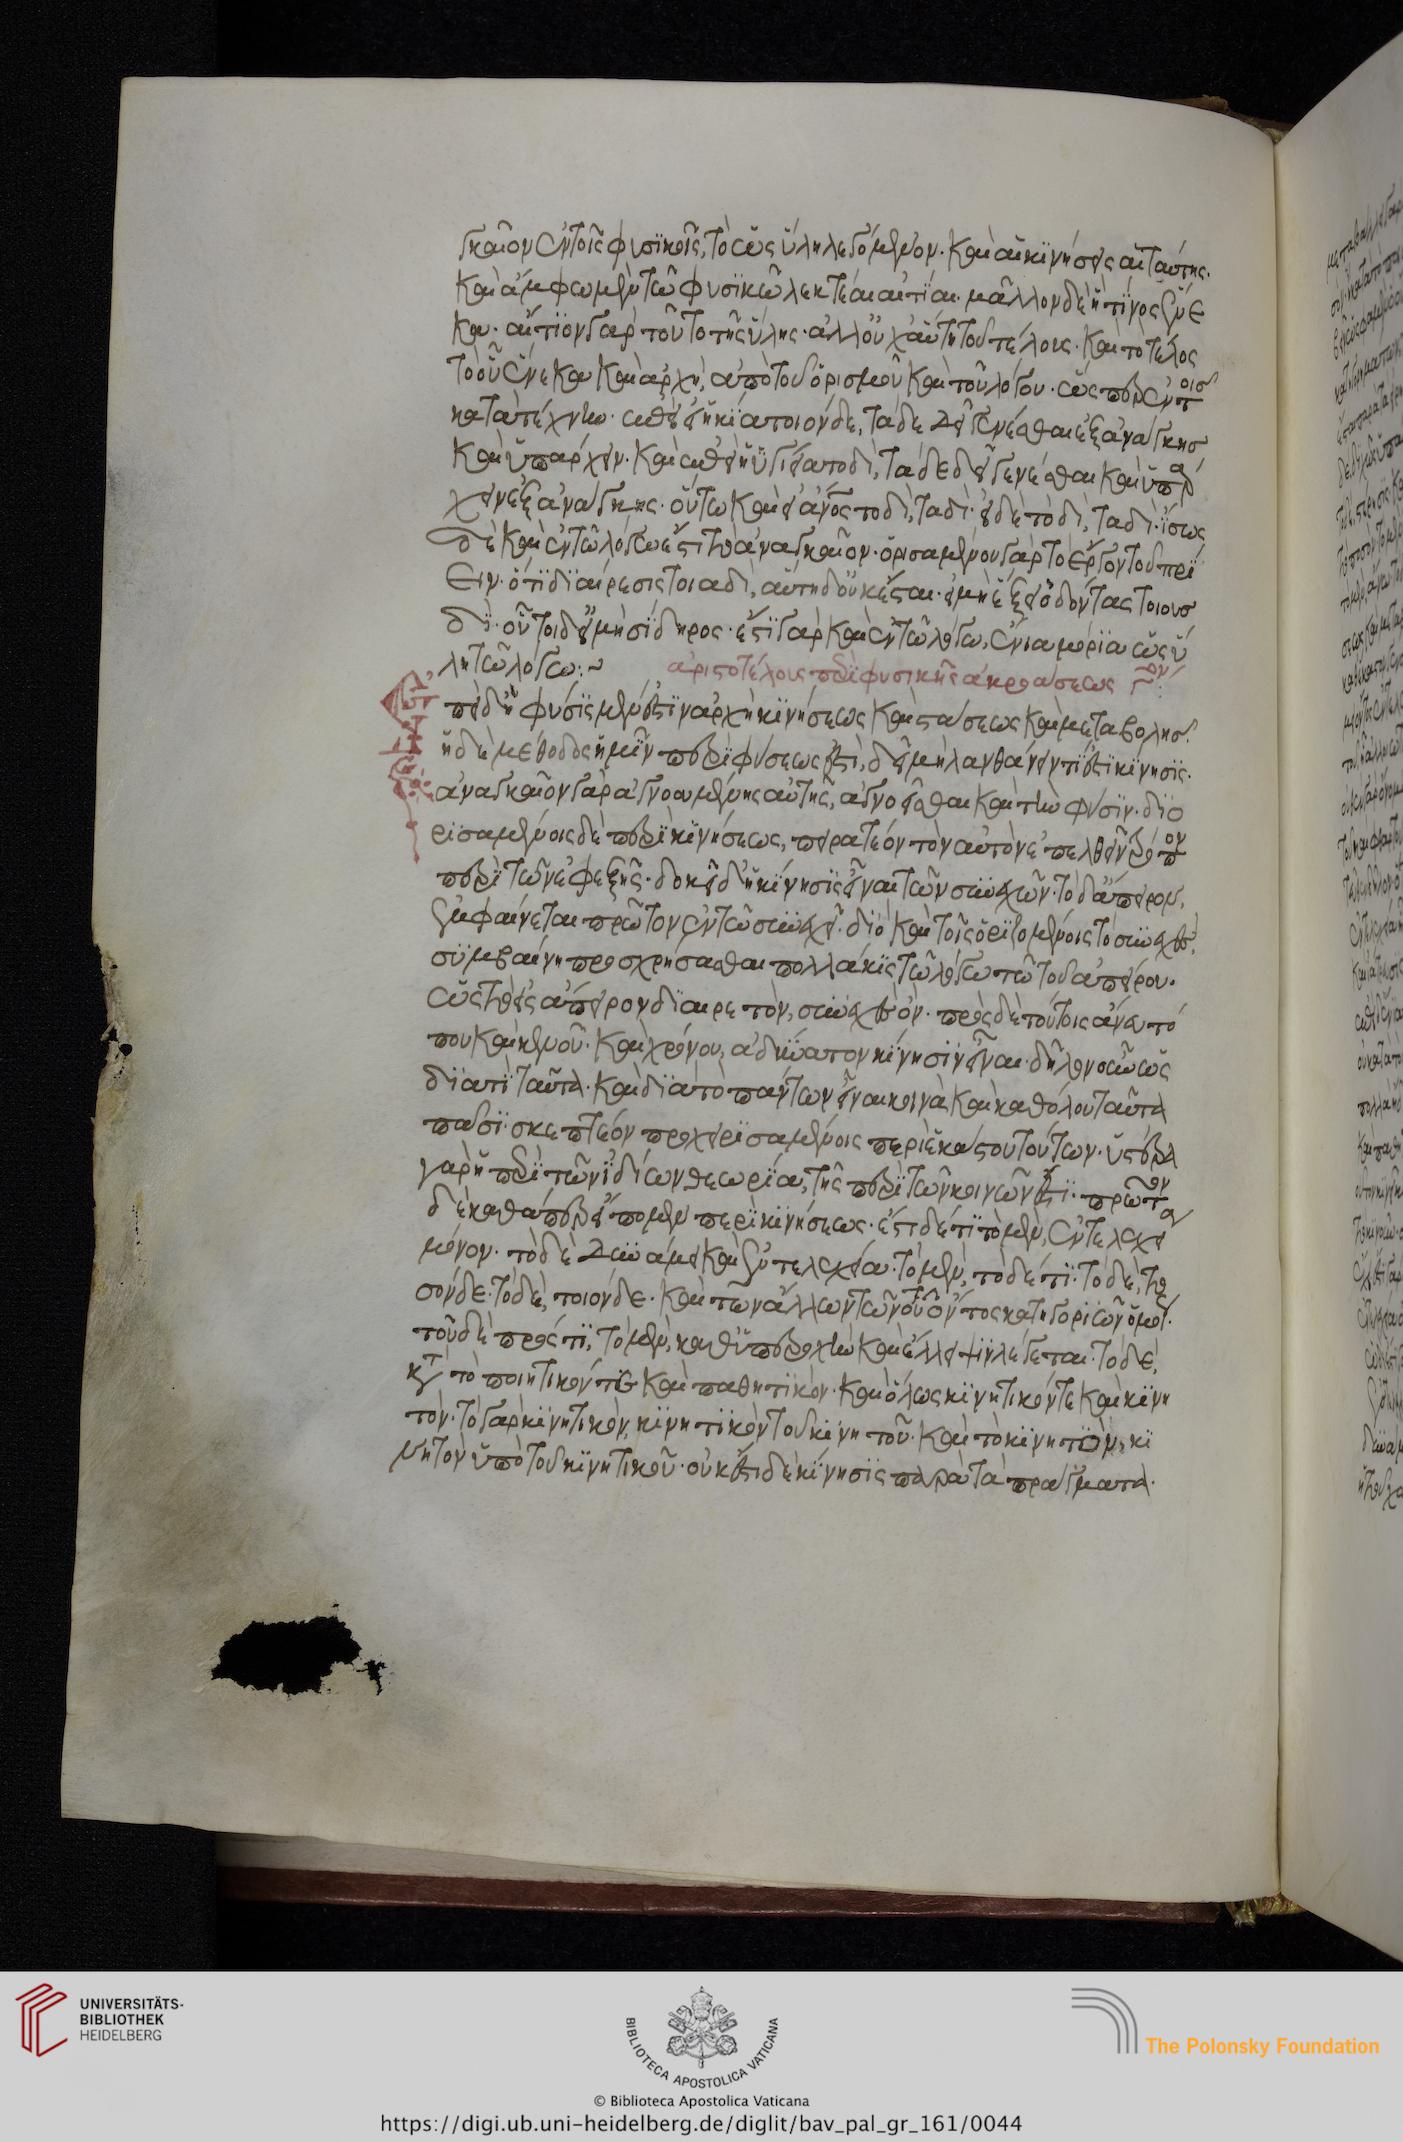 γκαῖον ἐν τοῖς φυσικοῖς, τὸ ὡς ὕλη λεγόμενον. καὶ αἱ κινήσεις αἱ ταύτης.
καὶ ἄμφω μὲν τῷ φυσικῷ λεκτέαι αἱ αἰτίαι. μᾶλλον δὲ ἡ τίνος ἕνε
κα. αἴτιον γὰρ τοῦτο τῆς ὕλης. ἀλλ' οὐχ αὕτη τοῦ τέλους. καὶ τὸ τέλος
τὸ οὗ ἕνεκα καὶ ἀρχὴ, ἀπὸ τοῦ ὁρισμοῦ καὶ τοῦ λόγου. ὥσπερ ἐν τοῖς
κατὰ τέχνην. ἐπεὶ ἡ οἰκία τοιόνδε, τάδε δεῖ γενέσθαι ἐξ ἀνάγκης
καὶ ὑπάρχειν. καὶ ἐπεὶ ἡ ὑγίεια τοδί, τάδε δεῖ γενέσθαι καὶ ὑπάρ
χειν ἐξ ἀνάγκης. οὕτω καὶ εἰ ἄνος τοδί, ταδί. εἰ δὲ τοδί, ταδί. ἴσως
δὲ καὶ ἐν τῷ λόγῳ ἔστι τὸ ἀναγκαῖον. ὁρισαμένου γὰρ τὸ ἔργον τοῦ πρί
ειν. ὅτι διαίρεσις τοιαδί, αὕτη δ' οὐκ ἔσται. εἰ μὴ ἕξει ὀδόντας τοιους
δί. οὗτοι δ' εἰ μὴ σίδηρος. ἔστι γὰρ καὶ ἐν τῷ λόγῳ, ἔνια μόρια ὡς ὕ
λη τῷ λόγῳ:~ ἀριστοτέλους περὶ φυσικῆς ἀκροάσεως Γον:
πεὶ δ' ἡ φύσις μέν ἐστιν ἀρχὴ κινήσεως καὶ στάσεως καὶ μεταβολῆς.
ἡ δὲ μέθοδος ἡμῖν περὶ φύσεως ἐστὶ, δεῖ μὴ λανθάνειν τί ἐστι κίνησις.
ἀναγκαῖον γὰρ ἀγνοουμένης αὐτῆς, ἀγνοεῖσθαι καὶ τὴν φύσιν. διο
ρισαμένοις δὲ περὶ κινήσεως, πειρατέον τὸν αὐτὸν ἐπελθεῖν τρόπον
περὶ τῶν ἐφεξῆς. δοκεῖ δ' ἡ κίνησις εἶναι τῶν συνεχῶν. τὸ δ' ἄπειρον,
ἐμφαίνεται πρῶτον ἐν τῷ συνεχεῖ. διὸ καὶ τοῖς ὁριζομένοις τὸ συνεχὲς,
συμβαίνει προσχρήσασθαι πολλάκις τῷ λόγῳ τῷ τοῦ ἀπείρου.
ὡς τὸ εἰς ἄπειρον διαιρετὸν, συνεχὲς ὄν. πρὸς δὲ τούτοις ἄνευ τό
που καὶ κενοῦ. καὶ χρόνου, ἀδύνατον κίνησιν εἶναι. δῆλον οὖν ὡς
διά τι ταῦτα. καὶ διὰ τὸ πάντων εἶναι κοινὰ καὶ καθόλου ταῦτα
πᾶσι. σκεπτέον προχειρισαμένοις περὶ ἑκάστου τούτων. ὑστέρα
γὰρ ἡ περὶ τῶν ἰδίων θεωρία, τῆς περὶ τῶν κοινῶν ἐστι. πρῶτον
δὲ καθάπερ εἴπομεν περὶ κινήσεως. ἔστι δέ τι τὸ μὲν, ἐντελεχείᾳ
μόνον. τὸ δὲ δυνάμει καὶ ἐντελεχείᾳ. τὸ μὲν, τόδε τι. τὸ δὲ, το
σόνδε. τὸ δὲ, τοιόνδε. καὶ τῶν ἄλλων τῶν τοῦ ὄντος κατηγοριῶν ὁμοί.
τοῦ δὲ πρός τι, τὸ μὲν, καθ' ὑπεροχὴν καὶ ἔλλειψιν λέγεται. τὸ δὲ,
κατὰ τὸ ποιητικόν τε καὶ παθητικόν. καὶ ὅλως κινητικόν τε καὶ κινη
τόν. τὸ γὰρ κινητικὸν, κινητικὸν τοῦ κινητοῦ. καὶ τὸ κινητὸν, κι
νητὸν ὑπὸ τοῦ κινητικοῦ. οὐκ ἔστι δὲ κίνησις παρὰ τὰ πράγματα.
UNIVERSITÄTS-
BIBLIOTHEK
HEIDELBERG
BIBLIOTECA APOSTOLICA VATICANA
The Polonsky Foundation
© Biblioteca Apostolica Vaticana
https://digi.ub.uni-heidelberg.de/diglit/bav_pal_gr_161/0044